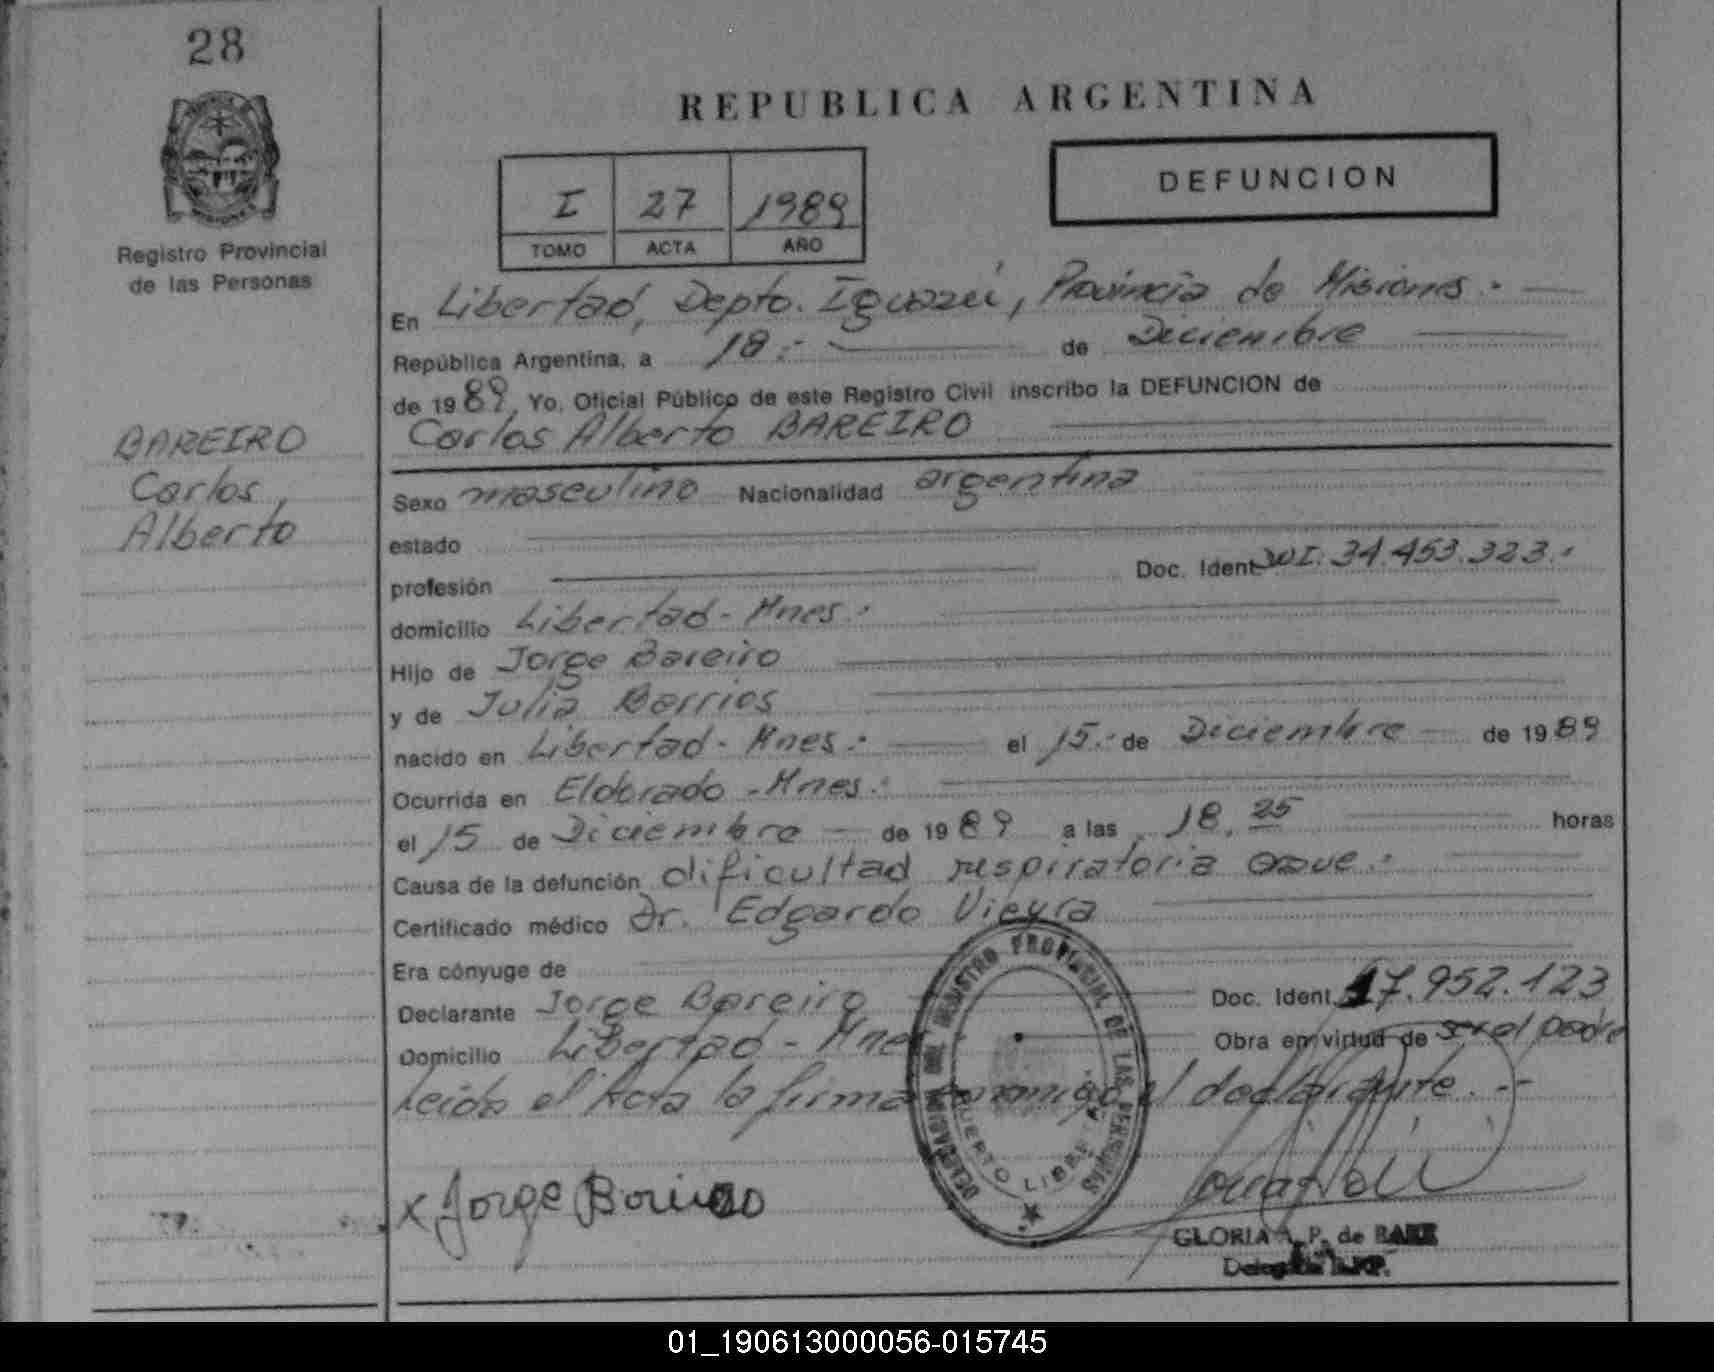 28
REPUBLICA ARGENTINA
DEFUNCION
I 27 1989
TOMO ACTA AÑO
MISIONES
Registro Provincial
de las Personas
En Libertad, Depto. Iguazú, Provincia de Misiones.-
República Argentina, a 18.- de Diciembre
de 1989, Yo, Oficial Público de este Registro Civil inscribo la DEFUNCION de
Carlos Alberto BAREIRO
BAREIRO
Carlos
Alberto
Sexo masculino Nacionalidad argentina
estado
profesión Doc. Ident. DNI. 34.453.323.-
domicilio Libertad - Mnes.-
Hijo de Jorge Bareiro
y de Julia Barrios
nacido en Libertad - Mnes.- el 15.- de Diciembre de 1989
Ocurrida en Eldorado - Mnes.-
el 15 de Diciembre de 1989 a las 18,25 horas
Causa de la defunción dificultad respiratoria
Certificado médico Dr. Edgardo Vieyra
Era cónyuge de
Declarante Jorge Bareiro Doc. Ident. 17.952.123
Domicilio Libertad - Mnes Obra en virtud de ser el padre
Leída el Acta la firma conmigo el declarante.--
DELEGACION DEL REGISTRO PROVINCIAL DE LAS PERSONAS
PUERTO LIBERTAD
x Jorge Bareiro
GLORIA A. P. de
01_190613000056-015745